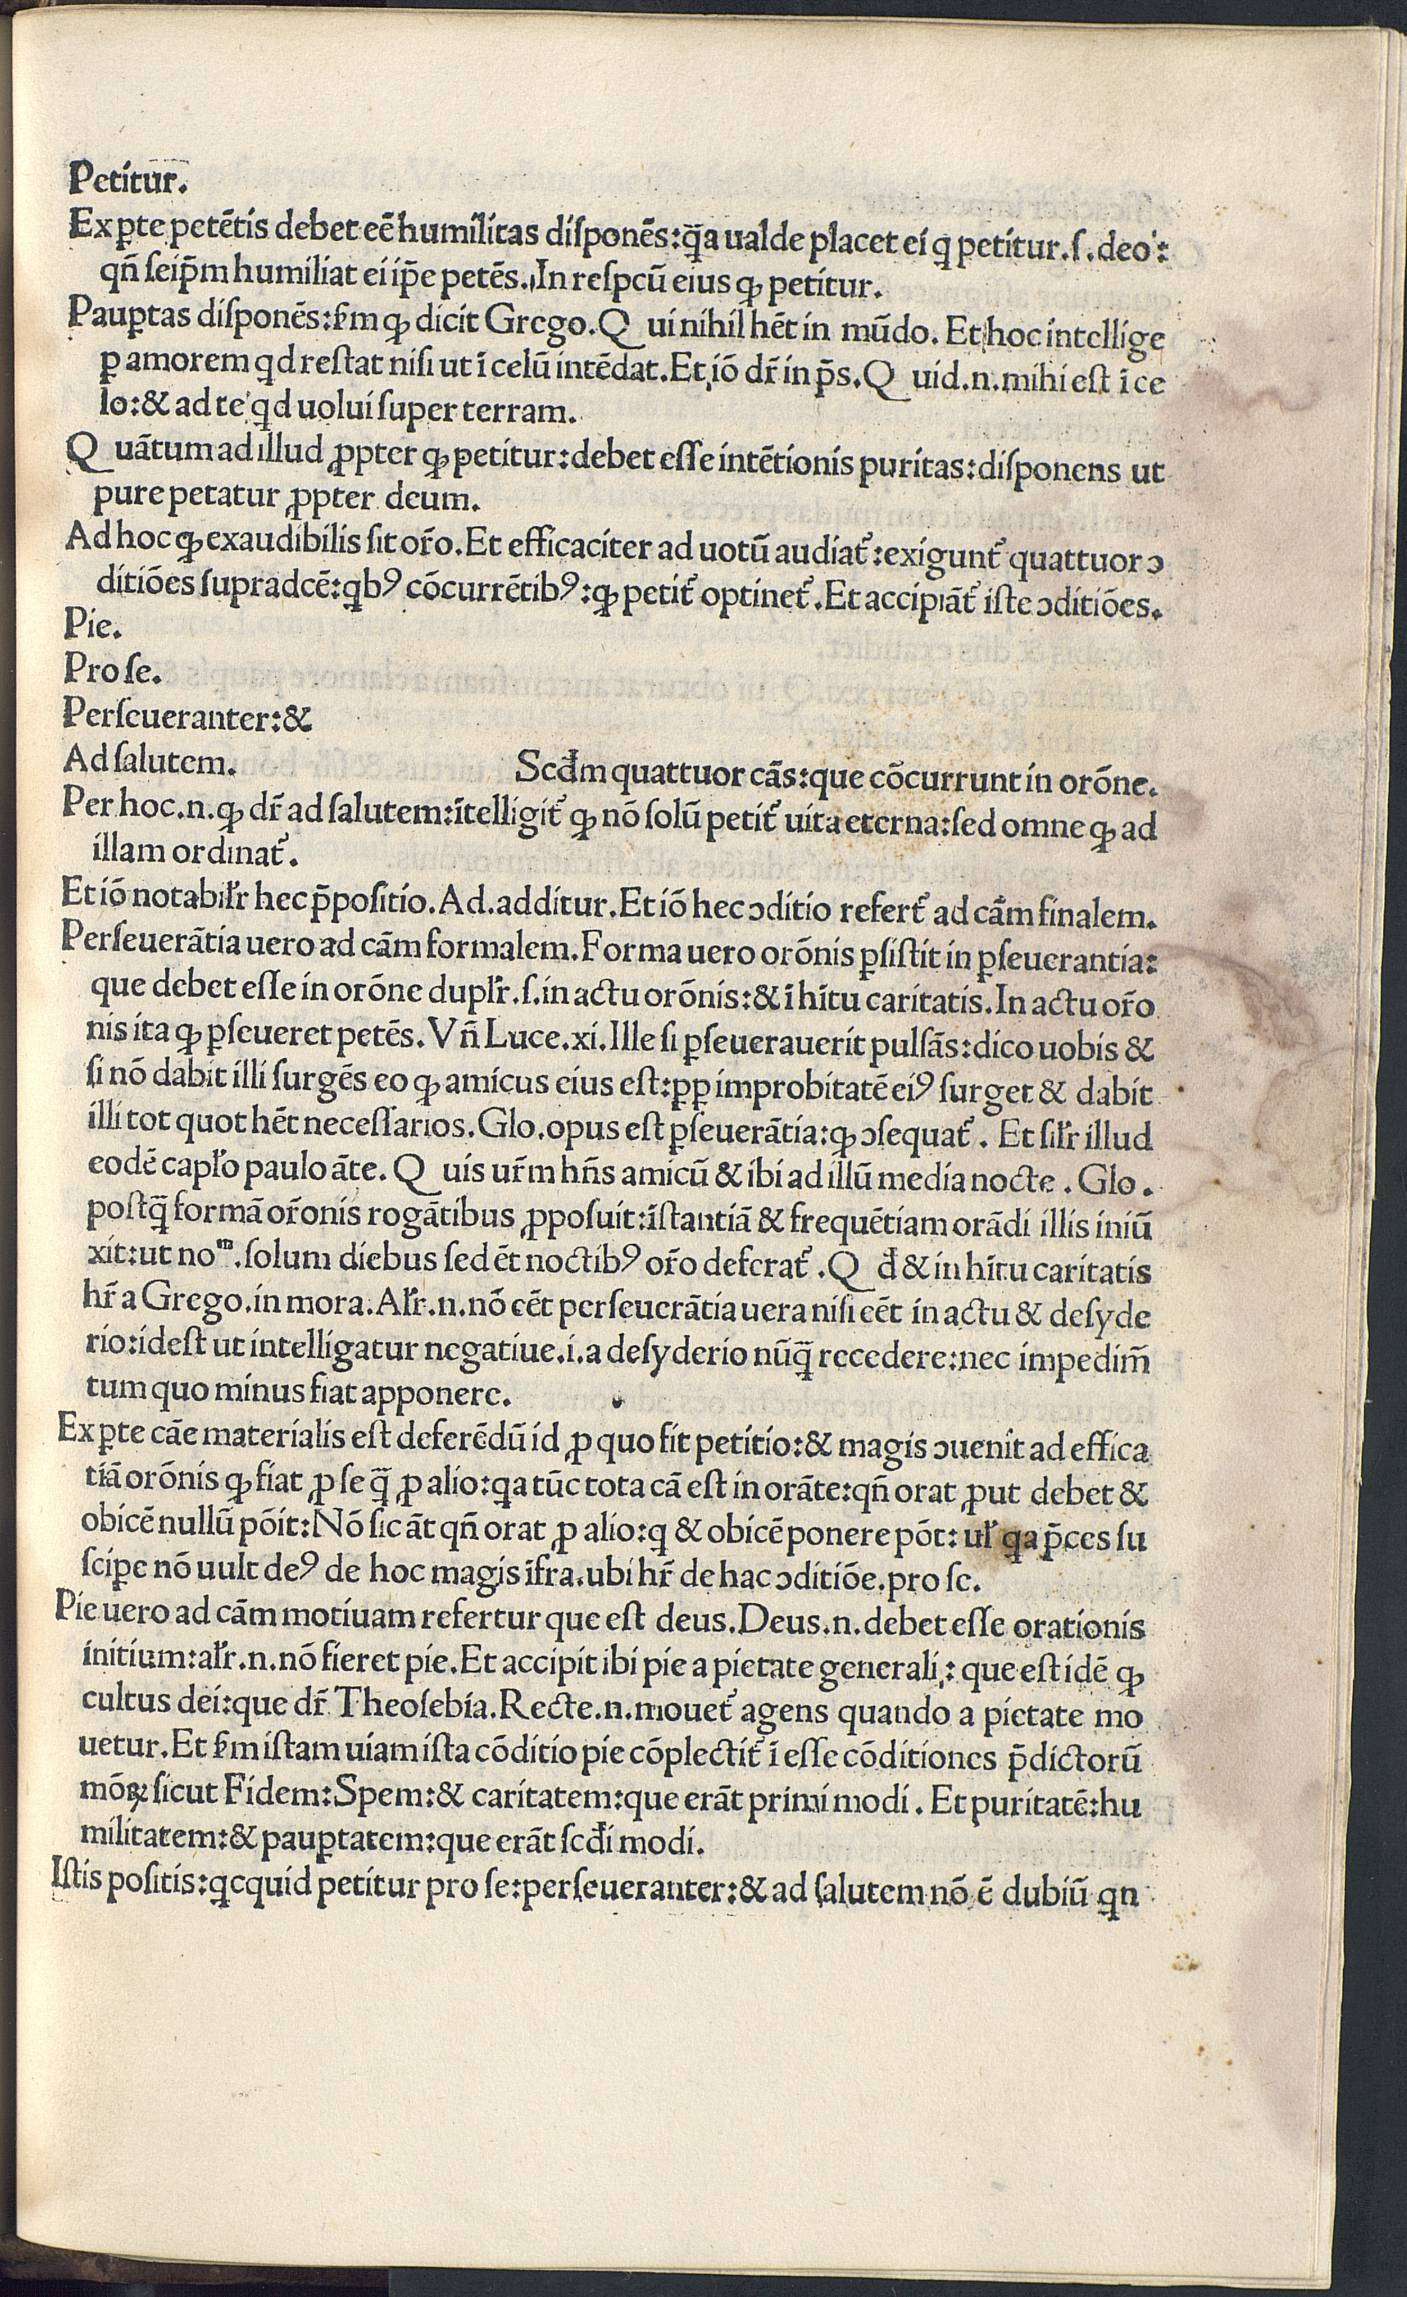 Petitur.
Ex ꝑte petētis debet eē humilitas disponēs:q̄a ualde placet ei q petitur.ſ.deo:
qn̄ ſeip̄m humiliat ei ip̄e petēs.In reſpcū eius ꝙ petitur.
Paupꝑtas diſponēs:ẜm ꝙ dicit Grego.Q ui nihil hēt in mūdo.Et hoc intellige
ꝑ amorem qd reſtat niſi ut ī celū intēdat.Et iō dr̄ in p̄s.Q uid.n.mihi eſt ī ce
lo:& ad te qd uolui ſuper terram.
Q uātum ad illud ꝓpter ꝙ petitur:debet eſſe intētionis puritas:diſponens ut
pure petatur ꝓpter deum.
Ad hoc ꝙ exaudibilis ſit or̄o.Et efficaciter ad uotū audiat᷑:exigunt᷑ quattuor ↄ
ditiōes ſupradcē:qbꝰ cōcurrētibꝰ:ꝙ petit᷑ optinet᷑.Et accipiāt᷑ iſte ↄditiōes.
Pie.
Pro ſe.
Perſeueranter:&
Ad ſalutem. Scd̄m quattuor cās:que cōcurrunt in orōne.
Per hoc.n.ꝙ dr̄ ad ſalutem:ītelligit᷑ ꝙ nō ſolū petit᷑ uita eterna:ſed omne ꝙ ad
illam ordinat᷑.
Et iō notabilr̄ hec p̄poſitio.Ad.additur.Et iō hec ↄditio refert᷑ ad cām finalem.
Perſeuerātia uero ad cām formalem.Forma uero orōnis ꝑſiſtit in ꝑſeuerantia:
que debet eſſe in orōne duplr̄.ſ.in actu orōnis:& ī hītu caritatis.In actu or̄o
nis ita ꝙ ꝑſeueret petēs.Vn̄ Luce.xi.Ille ſi ꝑſeuerauerit pulſās:dico uobis &
ſi nō dabit illi ſurgēs eo ꝙ amicus eius eſt:ꝓꝑ improbitatē eiꝰ ſurget & dabit
illi tot quot hēt neceſſarios.Glo.opus eſt ꝑſeuerātia:ꝙ ↄſequat᷑. Et ſilr̄ illud
eodē caplo paulo āte.Q uis ur̄m hn̄s amicū & ibi ad illū media nocte .Glo.
poſtq̄ formā or̄onis rogātibus ꝓpoſuit:īſtantiā & frequētiam orādi illis iniū
xit:ut noᵐ.ſolum diebus ſed ēt noctibꝰ or̄o deferat᷑.Q d̄ & in hītu caritatis
hr̄ a Grego.in mora.Alr̄.n.nō eēt perſeuerātia uera niſi eēt in actu & deſyde
rio:ideſt ut intelligatur negatiue.i.a deſyderio nūq̄ recedere:nec impedim̄
tum quo minus fiat apponere.
Ex ꝑte cāe materialis eſt deferēdū id ꝓ quo fit petitio:& magis ↄuenit ad effica
tiā orōnis ꝙ fiat ꝓ ſe q̄ ꝓ alio:qa tūc tota cā eſt in orāte:qn̄ orat ꝓut debet &
obicē nullū pōit:Nō ſic āt qn̄ orat ꝓ alio:q & obicē ponere pōt:ul̄ qa p̄ces ſu
ſcipe nō uult deꝰ de hoc magis īfra.ubi hr̄ de hac ↄditiōe.pro ſe.
Pie uero ad cām motiuam refertur que eſt deus.Deus.n.debet eſſe orationis
initium:alr̄.n.nō fieret pie.Et accipit ibi pie a pietate generali:que eſt idē ꝙ
cultus dei:que dr̄ Theoſebia.Recte.n.mouet᷑ agens quando a pietate mo
uetur.Et ẜm iſtam uiam iſta cōditio pie cōplectit᷑ ī eſſe cōditiones p̄dictorū
mōꝝ ſicut Fidem:Spem:& caritatem:que erāt primi modi. Et puritatē:hu
militatem:& pauꝑtatem:que erāt ſcd̄i modi.
Iſtis poſitis:qcquid petitur pro ſe:perſeueranter:& ad ſalutem nō ē dubiū qn